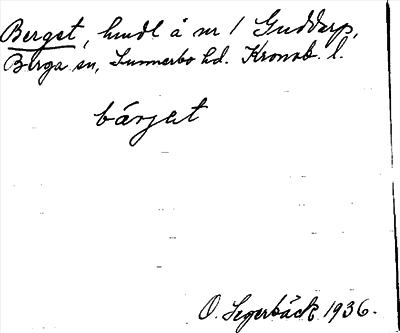 Berget, hmdl å nr 1 Guddarp,
Berga sn, Sunnerbo hd. Kronob. l.
bärjet
O. Segerbäck 1936.